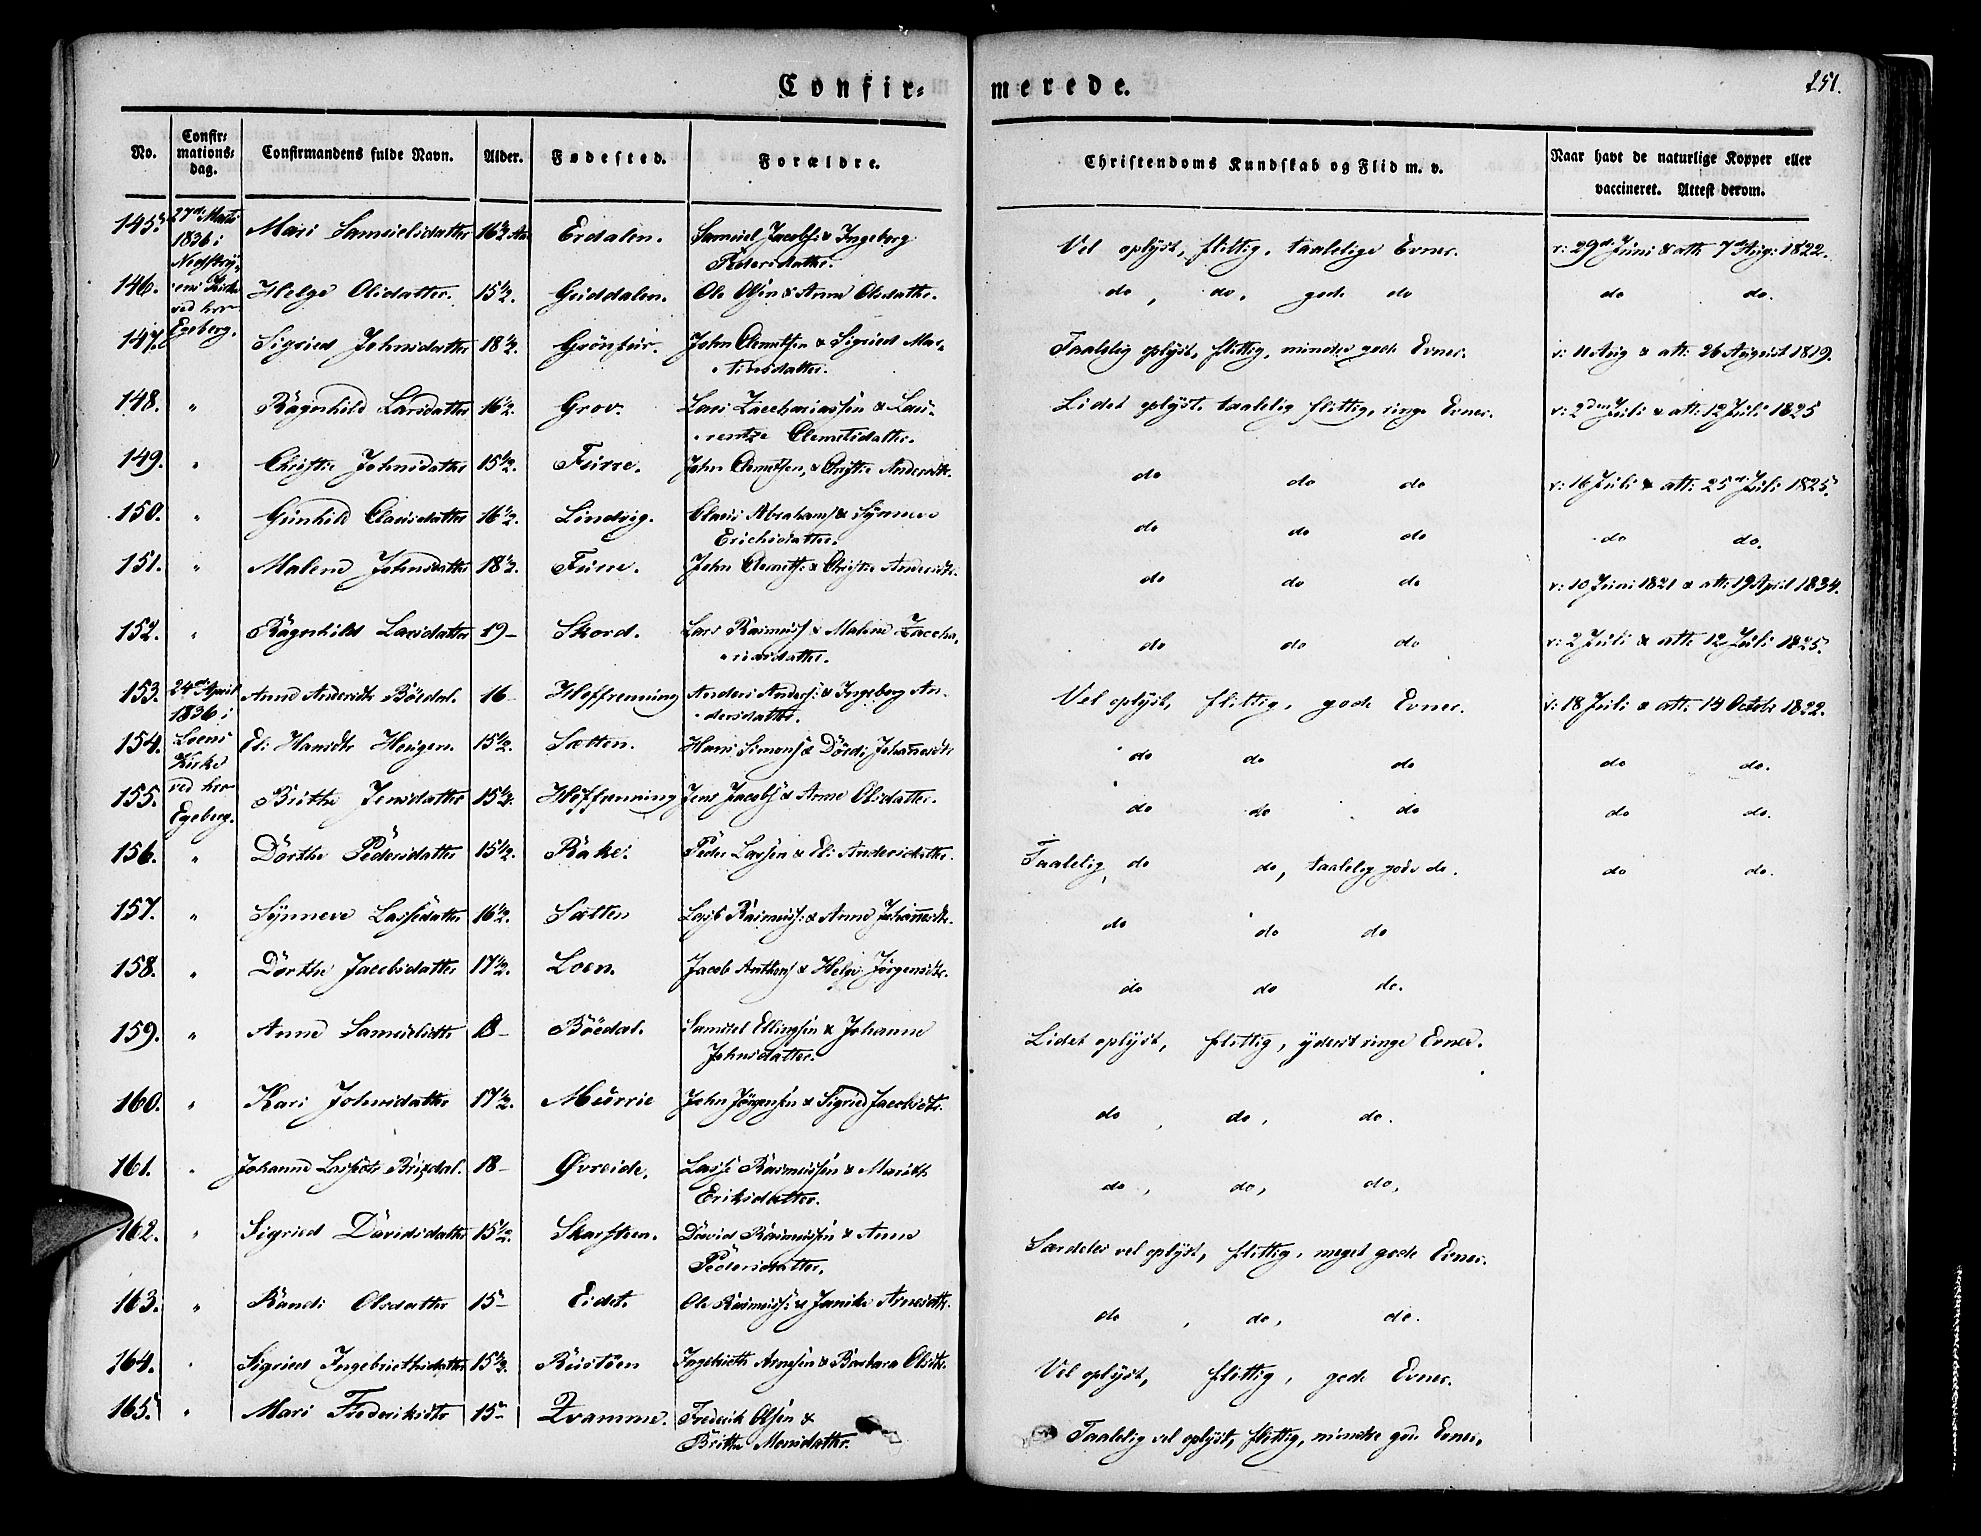 Confir= merede.
251.
No.
Confir=
mations=
dag.
Confirmandens fulde Navn.
Alder.
Fødested.
Forældre.
Christendoms Kundskab og Flid m. v.
Naar havt de naturlige Kopper eller
vaccineret. Attest derom.
145. 27de Marts 1836 i Mari Samuelsdatter 16½ Aar Erdalen. Samuel Jacobs: & Ingeborg
Pedersdatter.
Vel oplyst, flittig, taalelige Evner. v: 29de Juni & att: 7de Aug: 1822.
146. Kirke ved hrr Helge Olsdatter. 15½. Guddalen. Ole Olsen & Anne Olsdatter. do, do, gode do do do.
147. Egeberg. Sigried Johnsdatter 18½. John Clemetsen & Sigried Mar-
tinsdatter.
Taalelig oplyst, flittig, mindre gode Evner. v: 11 Aug & att: 26 August 1819.
148. " Ragnhild Larsdatter 16½. Grov. Lars Zacchariassen & Lau-
rentze Clemetsdatter.
Lidet oplyst, taalelig flittig, ringe Evner. v: 2den Juli & att: 12 Juli 1825
149. " Christie Johnsdatter 15½. Furre. John Clemetsen, & Christie Andersdtr. do do do v: 16 Juli & att: 25de Juli 1825.
150. " Gunhild Clausdatter 16½. Lindvig. Claus Abrahams & Synneve
Erichsdatter.
do do do do do.
151. " Malene Johnsdatter 18½. Furre. John Clemets: & Christie Andersdtr. do do do v: 10 Juni 1821 & att: 19 April 1834.
152. " Ragnhild Larsdatter 19- Skord. Lars Rasmuss & Malene Zaccha-
riasdatter.
do do do v: 2 Juli & att: 12 Juli 1825.
153. 24de April 1836 i Anne Andersdtr Bödal. 16- Hoffrenning Anders Anders: & Ingeborg An-
dersdatter.
Vel oplyst, flittig, gode Evner. v: 18 Juli & att: 14 Octobr 1822.
154. Loens Kirke Eli Hansdtr Haugen. 15½. Sætten. Hans Simons & Dördi Johannesdtr do do do do do.
155. ved hrr Egeberg. Brithe Jensdatter 15½. Hoffrenning Jens Jacobs & Anne Olsdatter. do do do do do.
156. " Dorthe Pedersdatter 15½. Rake. Peder Larsen & Eli Andersdatter. Taalelig, do do, taalelig gode do. do do.
157. " Synneve Lassedatter 16½. Sætten Lass Rasmuss: & Anne Johannesdtr. do do do
158. " Dorthe Jacobsdatter 17½. Loen. Jacob Anthons & Helge Jørgensdtr. do do do.
159. " Anne Samuelsdtr 18- Böedal. Samuel Ellingsen & Johanne
Johnsdatter.
Lidet oplyst, flittig, yderst ringe Evner.
160. " Kari Johnsdatter 17½. Murrie John Jørgensen & Sigried Jacobsdtr. do, do, do.
161. " Johanne Lassedtr Brixdal. 18- Øvreide. Lasse Rasmussen & Marith
Eriksdatter.
do, do, do,
162. " Sigried Davidsdatter 15½. Skarsteen. David Rasmussen & Anne
Pedersdatter.
Særdeles vel oplyst, flittig, meget gode Evner.
163. " Randi Olsdatter 15- Eidet. Ole Rasmuss: & Janike Arnesdtr. do, do, do.
164. " Sigried Ingebriethsdatter 15½. Rustöen Ingebrieth Arnesen & Barbara Olsdtr. Vel oplyst, flittig, gode Evner.
165. " Mari Frederiksdtr 15- Tvamme. Frederik Olsen &
Brithe Monsdatter.
Taalelig vel oplyst, flittig, mindre gode Evner.